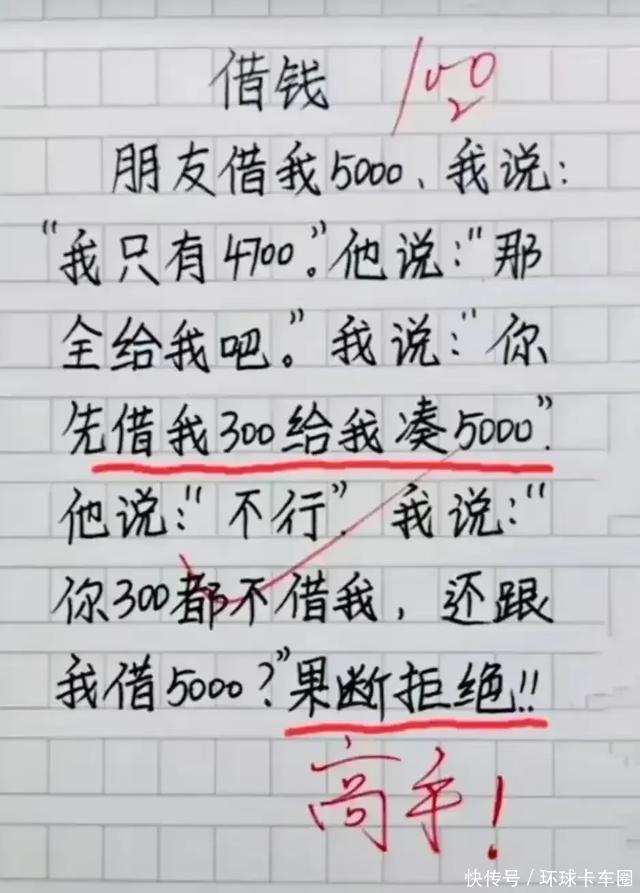 借钱 100
朋友借我5000、我说:
“我只有4700。”他说:“那
全给我吧。”我说:“你
先借我300给我凑5000”.
他说:“不行”. 我说:“
你300都不借我，还跟
我借5000?”果断拒绝!!
高手!
快传号/环球卡车圈